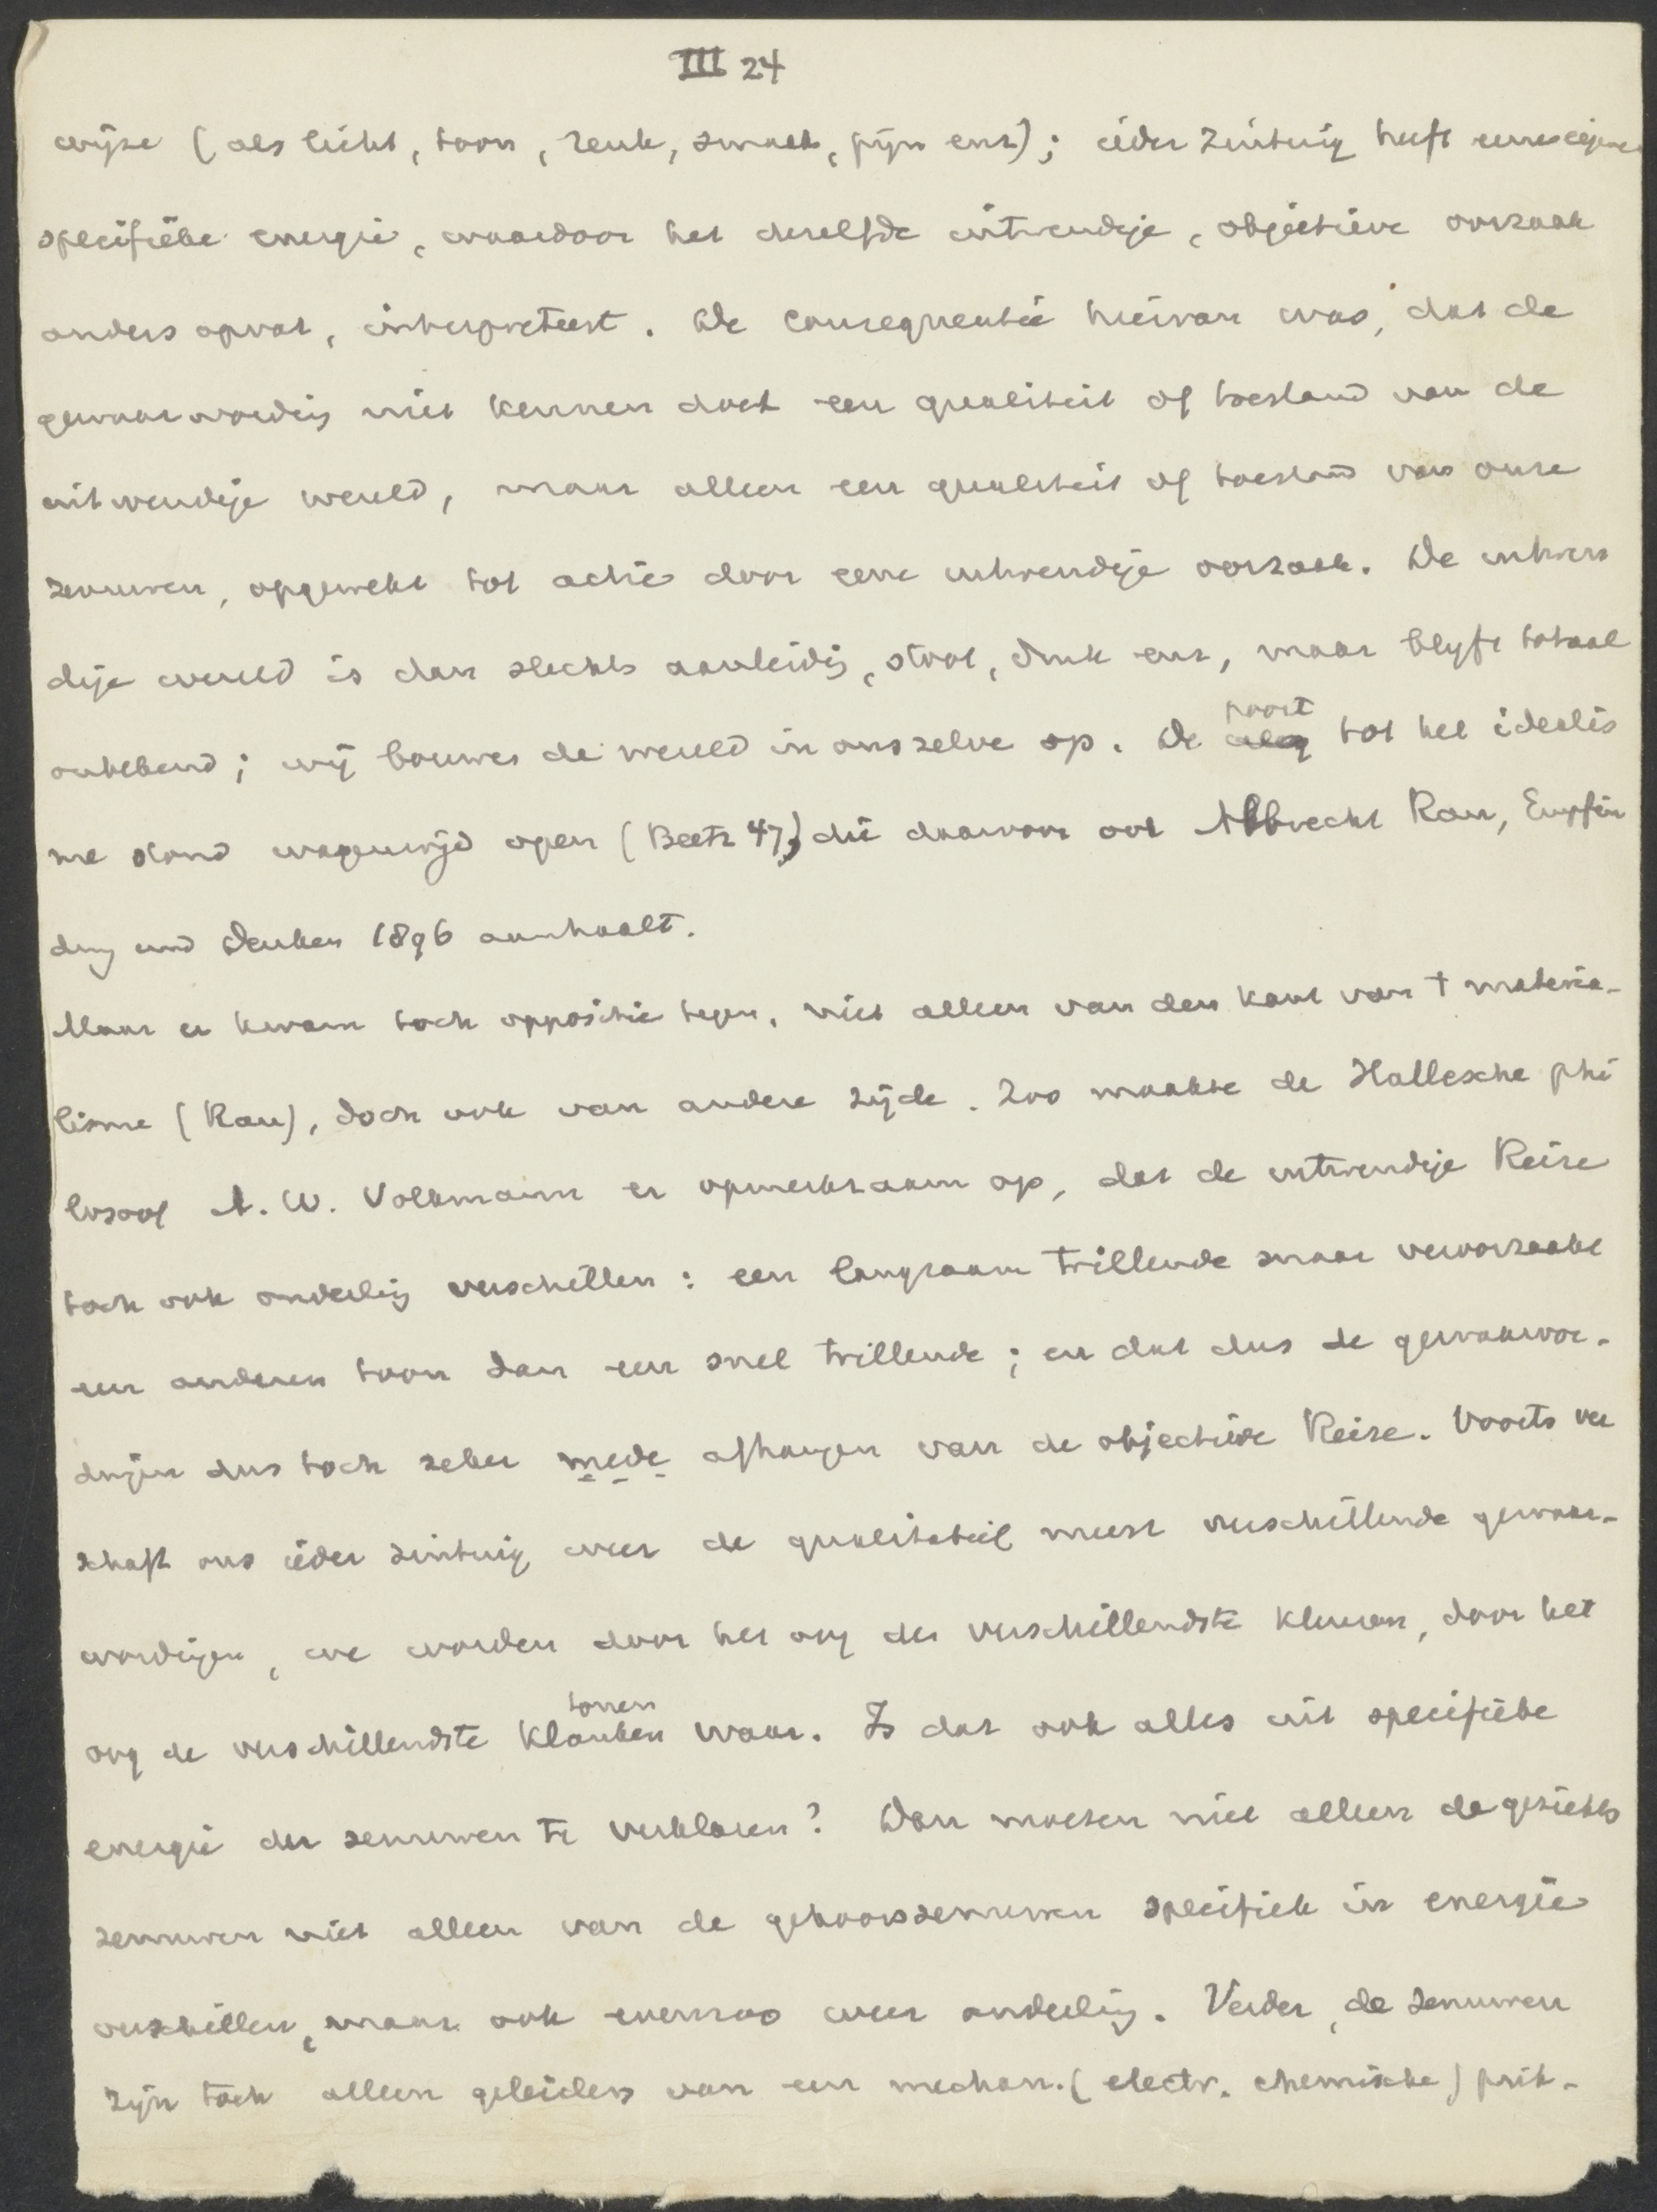 III 24
wijze (als licht, toon, reuk, smaak, pijn enz); ieder zintuig heeft eene eigene
specifieke energie, waardoor het dezelfde uitwendige, objectieve oorzaak
anders opvat, interpreteert. De consequentie hiervan was, dat de
gewaarwording niet kennen doet een qualiteit of toestand van de
uitwendige wereld, maar alleen een qualiteit of toestand van onze
zenuwen, opgewekt tot actie door eene uitwendige oorzaak. De uitwen
dige wereld is dan slechts aanleiding, stoot, druk enz, maar blijft totaal
onbekend; wij bouwen de wereld in ons zelve op. De poort tot het idealis
me stond wagenwijd open (Beetz 47) die daarvoor ook Albrecht Rau, Empfin
dung und Denken 1896 aanhaalt.
Maar er kwam toch oppositie tegen, niet alleen van den kant van t materia-
lisme (Rau), doch ook van andere zijde. Zoo maakte de Hallesche phi
losoof A. W. Volkmann er opmerkzaam op, dat de uitwendige Reize
toch ook onderling verschillen: een langzaam trillende snaar veroorzaakt
een anderen toon dan een snel trillende; en dat dus de gewaarwor-
dingen dus toch zeker mede afhangen van de objectieve Reize. Voorts ver
schaft ons ieder zintuig weer de qualitatief meest verschillende gewaar-
wordingen, we worden door het oog de verschillendste kleuren, door het
oog de verschillendste klanken tonen waar. Is dat ook alles uit specifieke
energie der zenuwen te verklaren? Dan moeten niet alleen de gezichts
zenuwen niet alleen van de gehoorszenuwen specifiek in energie
verschillen, maar ook evenzoo weer onderling. Verder, de zenuwen
zijn toch alleen geleiders van een mechan. (electr. chemische) prik-